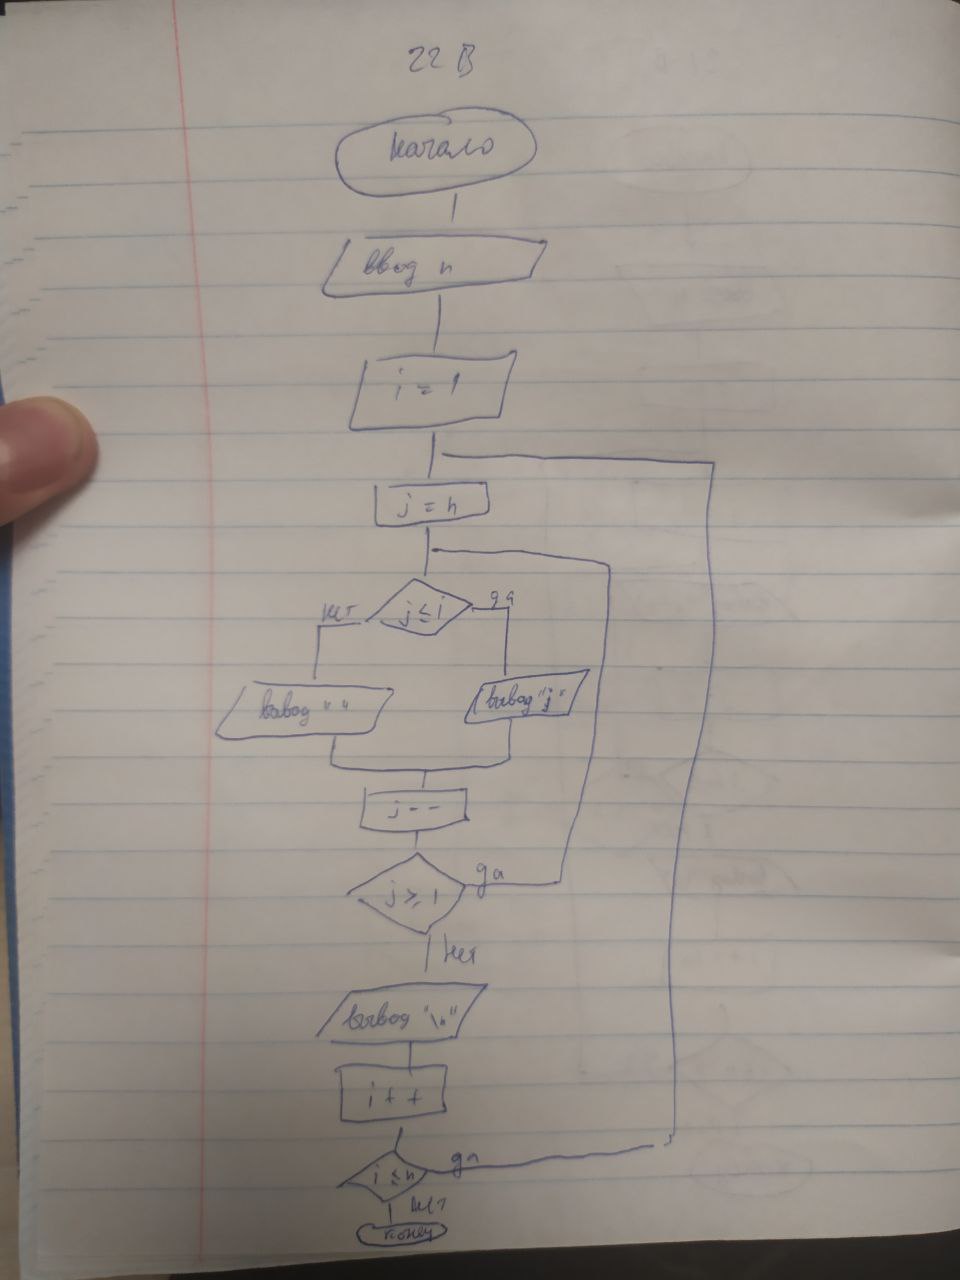 22 В
Начало
ввод n
i = 1
j = n
j ≤ i
нет
да
вывод " "
вывод "j"
j - -
j ≥ 1
да
нет
вывод "\n"
i + +
i ≤ n
да
нет
конец